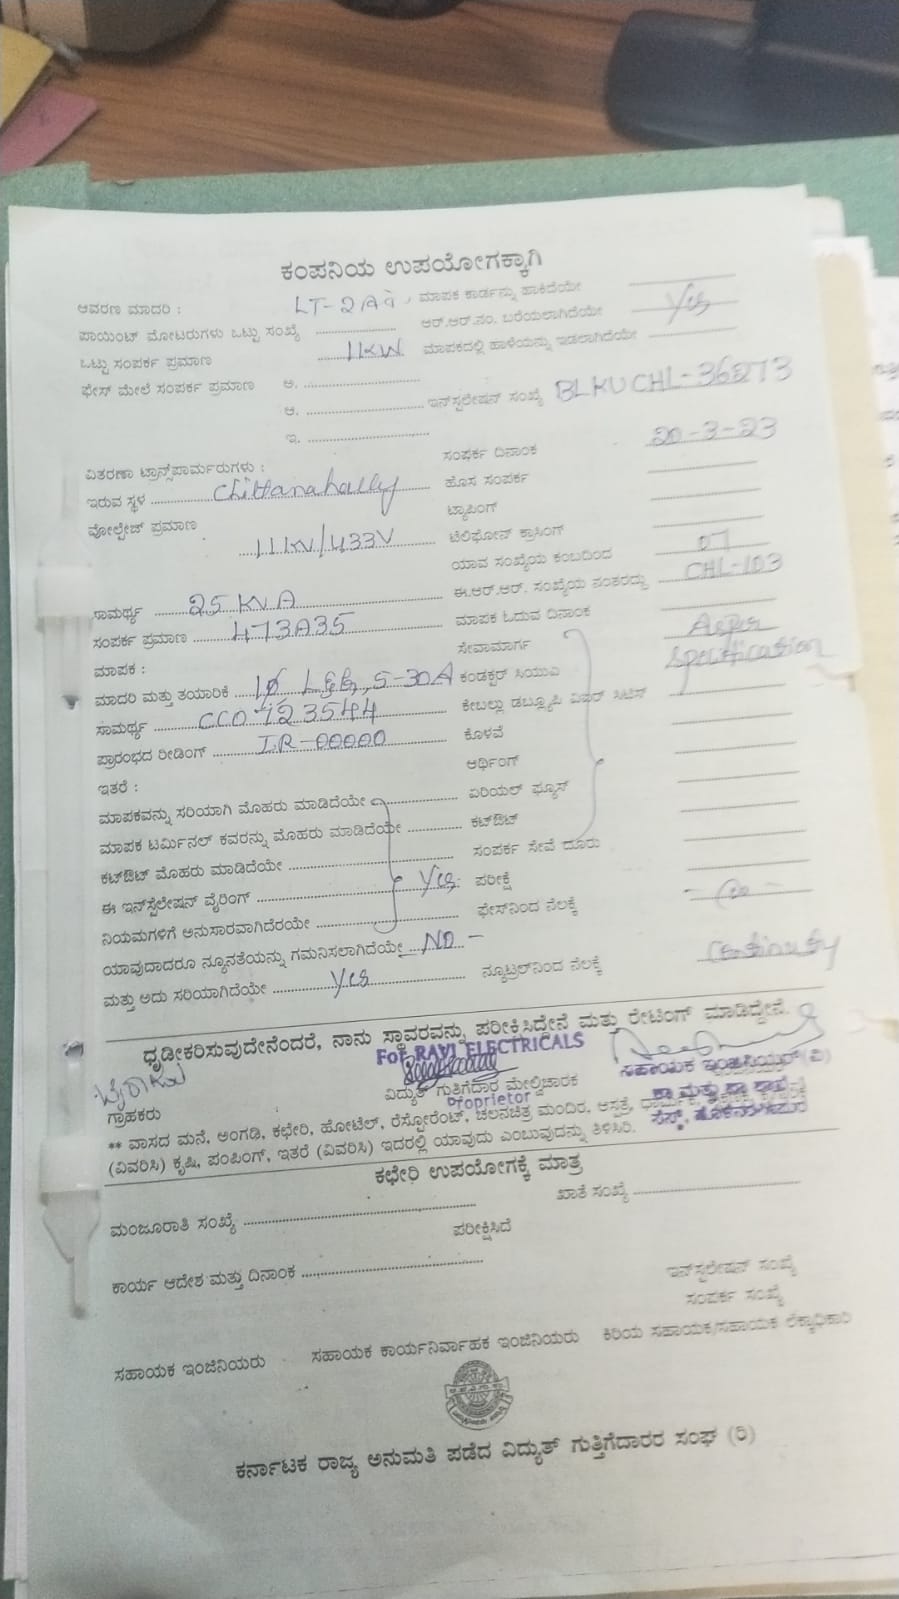 ಕಂಪನಿಯ ಉಪಯೋಗಕ್ಕಾಗಿ
ಆವರಣ ಮಾದರಿ : LT-2A ಮಾಪಕ ಕಾರ್ಡನ್ನು ಹಾಕಿದೆಯೇ
ಪಾಯಿಂಟ್ ಮೋಟರುಗಳು ಒಟ್ಟು ಸಂಖ್ಯೆ ಆರ್.ಆರ್.ನಂ. ಬರೆಯಲಾಗಿದೆಯೇ Yes
ಒಟ್ಟು ಸಂಪರ್ಕ ಪ್ರಮಾಣ 1KW ಮಾಪಕದಲ್ಲಿ ಹಾಳೆಯನ್ನು ಇಡಲಾಗಿದೆಯೇ
ಫೇಸ್ ಮೇಲೆ ಸಂಪರ್ಕ ಪ್ರಮಾಣ ಅ.
ಆ. ಇನ್‌ಸ್ಟಲೇಷನ್ ಸಂಖ್ಯೆ BLKUCHL-36273
ಇ.
ಸಂಪರ್ಕ ದಿನಾಂಕ 20-3-23
ವಿತರಣಾ ಟ್ರಾನ್ಸ್‌ಪಾರ್ಮರುಗಳು :
ಇರುವ ಸ್ಥಳ Chittanahally ಹೊಸ ಸಂಪರ್ಕ
ವೋಲ್ಟೇಜ್ ಪ್ರಮಾಣ ಟ್ಯಾಪಿಂಗ್
11KV/433V ಟೆಲಿಫೋನ್ ಕ್ರಾಸಿಂಗ್
ಯಾವ ಸಂಖ್ಯೆಯ ಕಂಬದಿಂದ 07
ಸಾಮರ್ಥ್ಯ 25 KVA ಈ.ಆರ್.ಆರ್. ಸಂಖ್ಯೆಯ ನಂತರದ್ದು CHL-103
ಸಂಪರ್ಕ ಪ್ರಮಾಣ 473A35 ಮಾಪಕ ಓದುವ ದಿನಾಂಕ
ಮಾಪಕ : ಸೇವಾಮಾರ್ಗ As per
ಮಾದರಿ ಮತ್ತು ತಯಾರಿಕೆ 1ø L&G, 5-30A ಕಂಡಕ್ಟರ್ ಸಿಯುಎ Specification
ಸಾಮರ್ಥ್ಯ ಕೇಬಲ್ಲು ಡಬ್ಲ್ಯೂಪಿ ವಿಐಆರ್ ಸಿಟಿಸ್
ಪ್ರಾರಂಭದ ರೀಡಿಂಗ್ I.R-00000 ಕೊಳವೆ
ಇತರೆ : ಆರ್ಥಿಂಗ್
ಮಾಪಕವನ್ನು ಸರಿಯಾಗಿ ಮೊಹರು ಮಾಡಿದೆಯೇ ಏರಿಯಲ್ ಫ್ಯೂಸ್
ಮಾಪಕ ಟರ್ಮಿನಲ್ ಕವರನ್ನು ಮೊಹರು ಮಾಡಿದೆಯೇ ಕಟ್‌ಔಟ್
ಕಟ್‌ಔಟ್ ಮೊಹರು ಮಾಡಿದೆಯೇ ಸಂಪರ್ಕ ಸೇವೆ ದೂರು
ಈ ಇನ್‌ಸ್ಟೆಲೇಷನ್ ವೈರಿಂಗ್ Yes ಪರೀಕ್ಷೆ
ನಿಯಮಗಳಿಗೆ ಅನುಸಾರವಾಗಿದೆರಯೇ ಫೇಸ್‌ನಿಂದ ನೆಲಕ್ಕೆ
ಯಾವುದಾದರೂ ನ್ಯೂನತೆಯನ್ನು ಗಮನಿಸಲಾಗಿದೆಯೇ NO
ಮತ್ತು ಅದು ಸರಿಯಾಗಿದೆಯೇ Yes ನ್ಯೂಟ್ರಲ್‌ನಿಂದ ನೆಲಕ್ಕೆ Continuity
ಧೃಡೀಕರಿಸುವುದೇನೆಂದರೆ, ನಾನು ಸ್ಥಾವರವನ್ನು ಪರೀಕ್ಷಿಸಿದ್ದೇನೆ ಮತ್ತು ರೇಟಿಂಗ್ ಮಾಡಿದ್ದೇನೆ.
For RAVI ELECTRICALS
ಸಹಾಯಕ ಇಂಜಿನಿಯರ್ (ವಿ)
ವಿದ್ಯುತ್ ಗುತ್ತಿಗೆದಾರ ಮೇಲ್ವಿಚಾರಕ
Proprietor
ಗ್ರಾಹಕರು
** ವಾಸದ ಮನೆ, ಅಂಗಡಿ, ಕಛೇರಿ, ಹೋಟೆಲ್, ರೆಸ್ಟೋರೆಂಟ್, ಚಲನಚಿತ್ರ ಮಂದಿರ, ಆಸ್ಪತ್ರೆ,
(ವಿವರಿಸಿ) ಕೃಷಿ, ಪಂಪಿಂಗ್, ಇತರೆ (ವಿವರಿಸಿ) ಇದರಲ್ಲಿ ಯಾವುದು ಎಂಬುವುದನ್ನು ತಿಳಿಸಿರಿ.
ಕಛೇರಿ ಉಪಯೋಗಕ್ಕೆ ಮಾತ್ರ
ಮಂಜೂರಾತಿ ಸಂಖ್ಯೆ ಖಾತೆ ಸಂಖ್ಯೆ
ಪರೀಕ್ಷಿಸಿದೆ
ಕಾರ್ಯ ಆದೇಶ ಮತ್ತು ದಿನಾಂಕ ಇನ್‌ಸ್ಟಲೇಷನ್ ಸಂಖ್ಯೆ
ಸಂಪರ್ಕ ಸಂಖ್ಯೆ
ಸಹಾಯಕ ಇಂಜಿನಿಯರು ಸಹಾಯಕ ಕಾರ್ಯನಿರ್ವಾಹಕ ಇಂಜಿನಿಯರು ಕಿರಿಯ ಸಹಾಯಕ/ಸಹಾಯಕ ಲೆಕ್ಕಾಧಿಕಾರಿ
ಕರ್ನಾಟಕ ರಾಜ್ಯ ಅನುಮತಿ ಪಡೆದ ವಿದ್ಯುತ್ ಗುತ್ತಿಗೆದಾರರ ಸಂಘ (ರಿ)